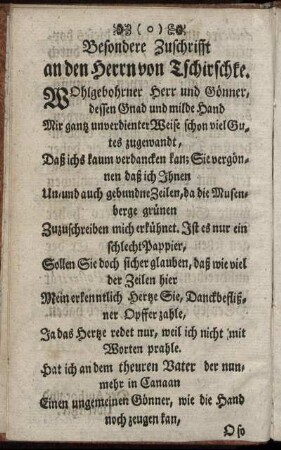 ( o )
Besondere Zuschrifft
an den Herrn von Tschirschke.
WOhlgebohrner Herr und Gönner,
dessen Gnad und milde Hand
Mir gantz unverdienter Weise schon viel Gu-
tes zugewandt,
Daß ichs kaum verdancken kan; Sie vergön-
nen daß ich Ihnen
Un- und auch gebundne Zeilen, da die Musen-
berge grünen
Zuzuschreiben mich erkühnet. Ist es nur ein
schlecht Pappier,
Sollen Sie doch sicher glauben, daß wie viel
der Zeilen hier
Mein erkenntlich Hertze Sie, Danckbefliß-
ner Opffer zahle,
Ja das Hertze redet nur, weil ich nicht mit
Worten prahle.
Hat ich an dem theuren Vater der nun-
mehr in Canaan
Einen ungemeinen Gönner, wie die Hand
noch zeugen kan,
O so